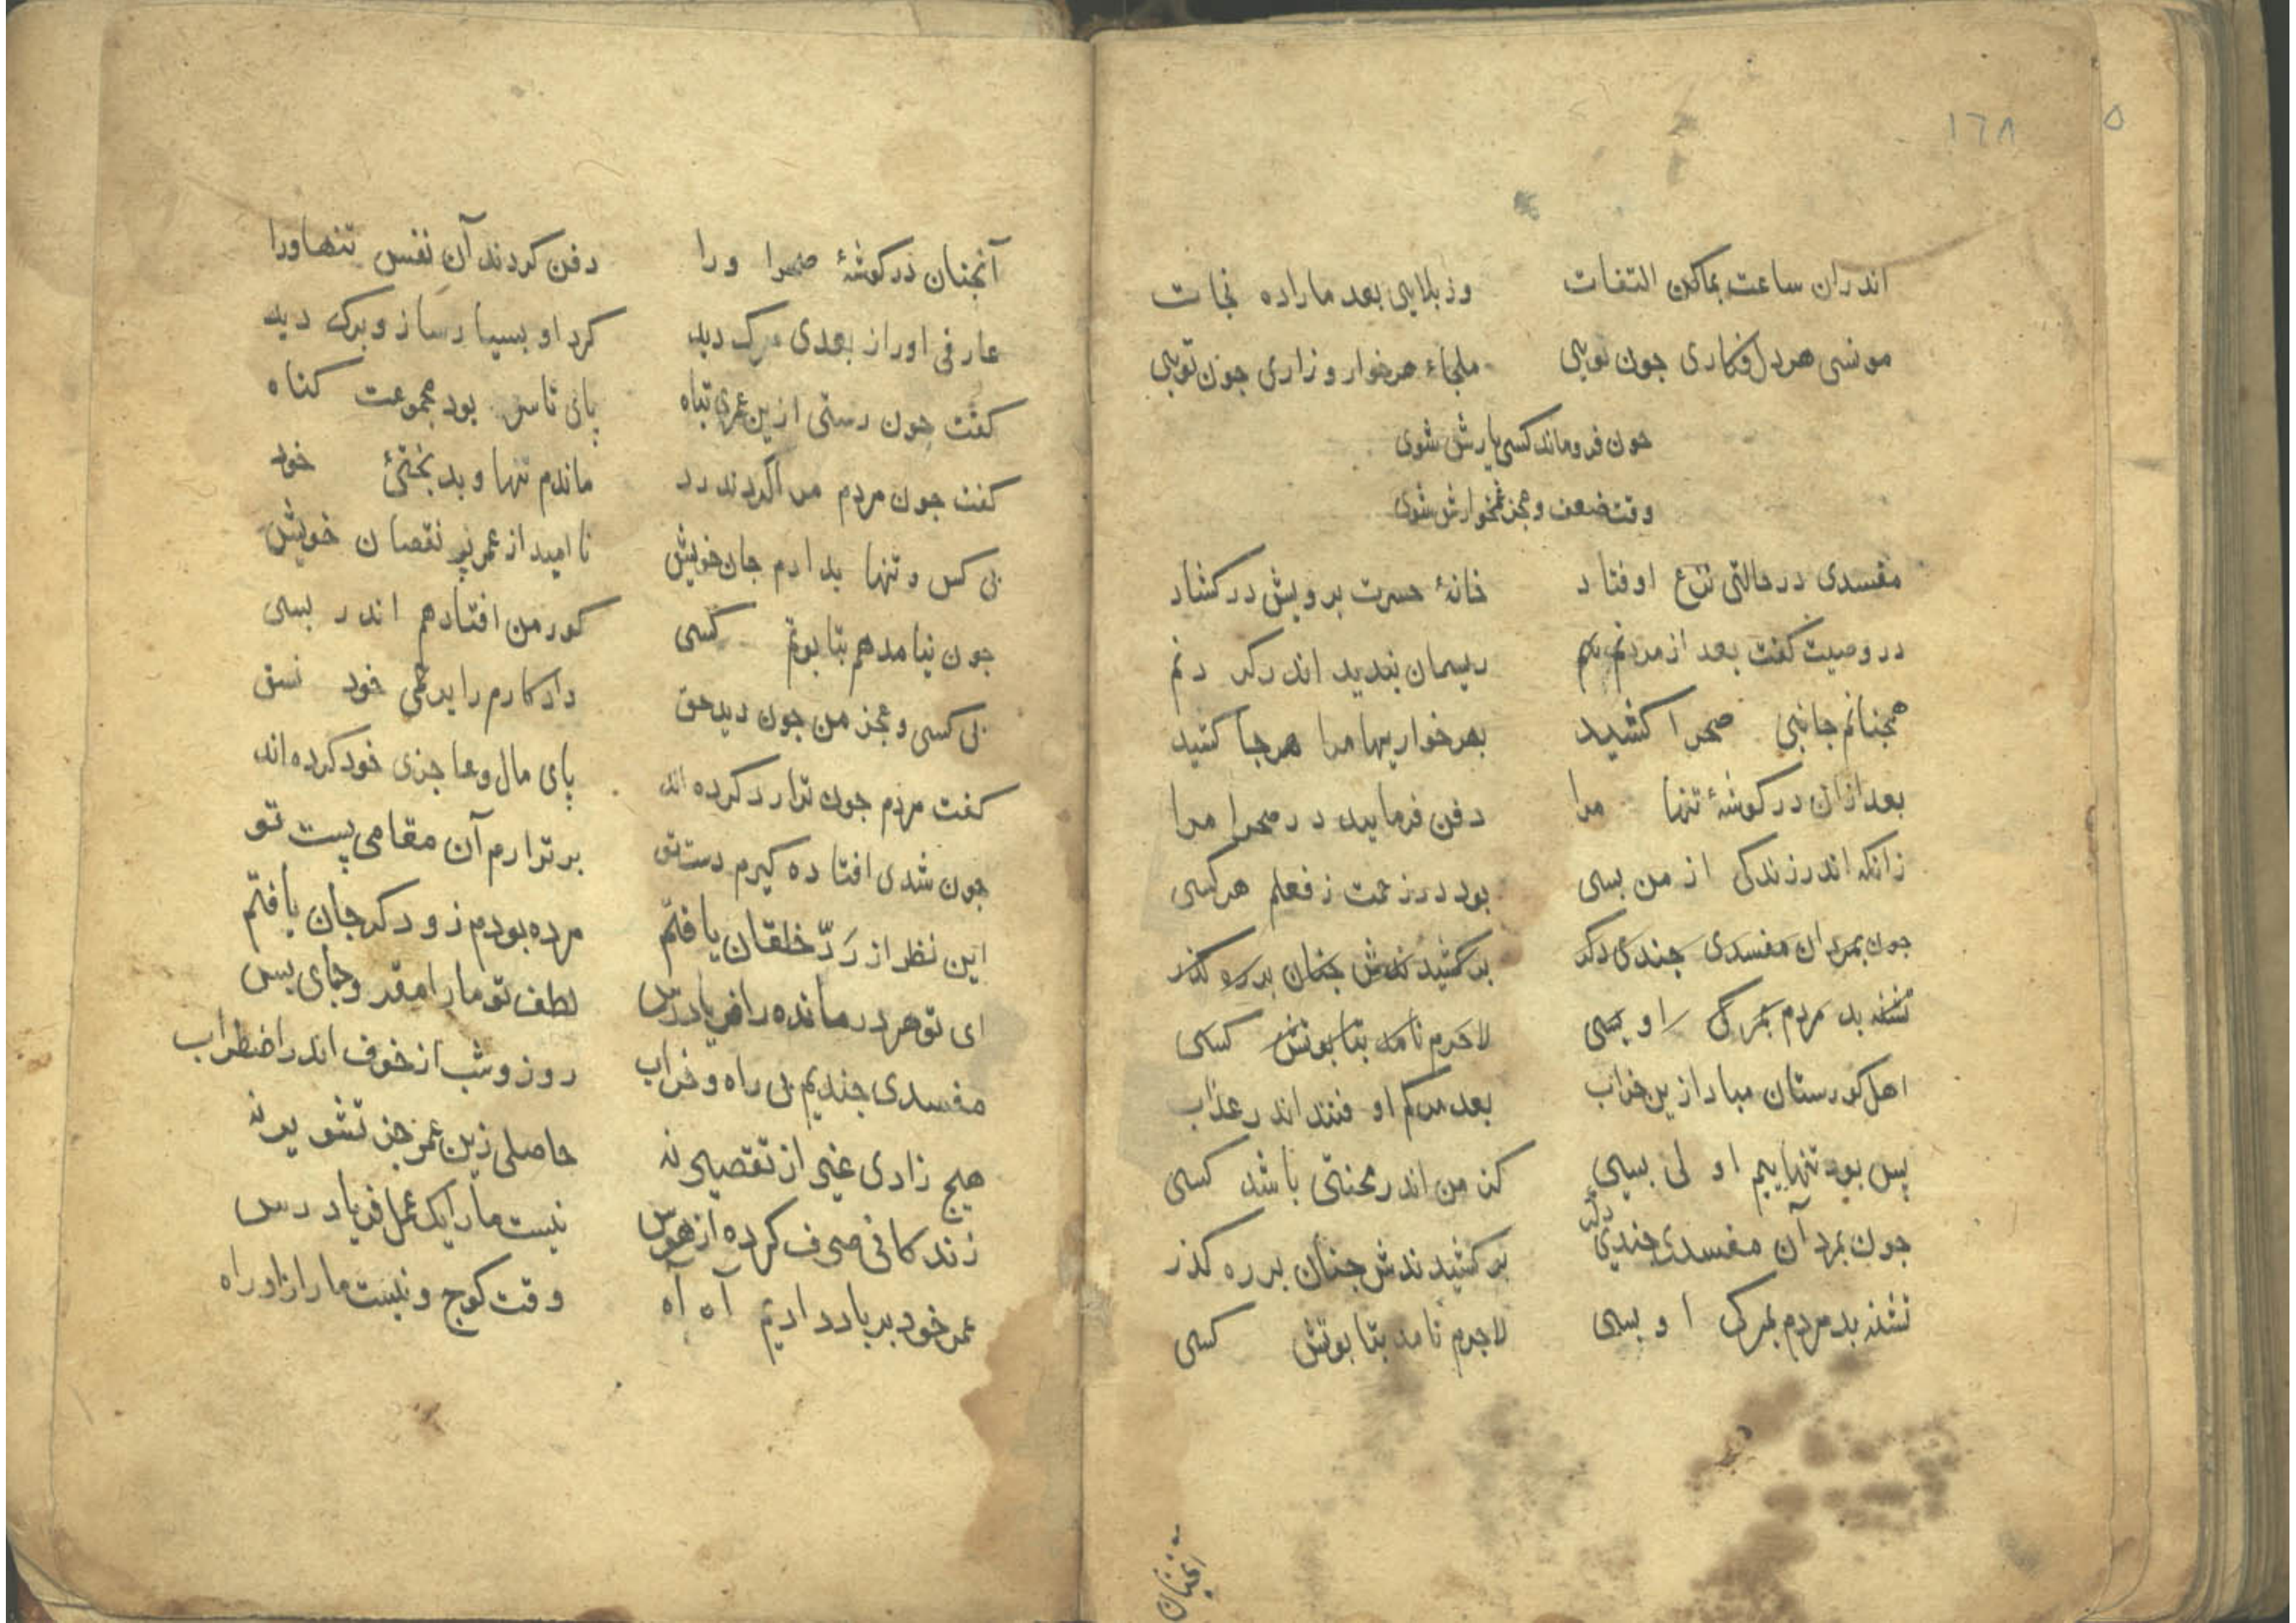 ١٦٨
٥
اندران ساعت بماکن التفات وز بلایی بعد ما را ده نجات
مونسی هر دل فکاری جون تویی ملجاء هر خوار و زاری جون تویی
جون فروماند کسی یارش شوی
وقت ضعف و عجز غمخوارش شوی
مفسدی در حالتی نزع اوفتاد خانهٔ حسرت برویش در کشاد
در وصیت کفت بعد از مردنم ریسمان بندید اندر کردنم
همجنانم جانبی صحرا کشید بهر خواریها مرا هر جا کشید
بعد ازان در کوشهٔ تنها مرا دفن فرمایید در صحرا مرا
زانکه اندر زندکی از من بسی بود در زحمت ز فعلم هر کسی
جون بمرد ان مفسدی جندی دکر بر کشیدندش جنان بر ره کذر
نشنه بد مردم بمرک او بسی لاجرم نامد بتابوتش کسی
اهل کورستان مبادا زین خراب بعد مرکم او فتند اندر عذاب
پس بود تنهاییم اولی بسی کز من اندر محنتی باشد کسی
جون بمرد آن مفسدی جندی دکر بر کشیدندش جنان بر ره کذر
نشنه بد مردم بمرک او بسی لاجرم نامد بتابوتش کسی
آنجنان
آنجنان در کوشهٔ صحرا ورا دفن کردند آن نفس تنها ورا
عارفی اورا از بعدی مرک دید کرد او بسیار ساز و برک دید
کفت جون رستی ازین عمری تباه پای تا سر بود مجموعت کناه
کفت جون مردم مرا کردند رد ماندم تنها و بدبختیٔ خود
بی کس و تنها بدادم جان خویش نا امید از عمر پر نقصان خویش
جون نیامد هم بتابوتم کسی کور من افتاد هم اندر بسی
بی کسی و عجز من جون دید حق داد کارم را برحمی خود نسق
کفت مردم جون ترا رد کرده اند پای مال و عاجزی خود کرده اند
جون شدی افتاده کیرم دست تو برتر ارم آن مقامی پست تو
این نظر از رَدّ خلقان یافتم مرده بودم زو دکر جان یافتم
ای تو هر درمانده را فریادرس لطف تو ما را مقر و جای بس
مفسدی جندیم بی راه و خراب روز و شب از خوف اندر اضطراب
هیج زادی غیر از تقصیر نه حاصلی زین عمر جز تشویر نه
زندکانی صرف کرده از هوس نیست ما را یک عمل فریاد رس
عمر خود بر باد دادیم آه آه وقت کوج و نیست ما را زاد راه